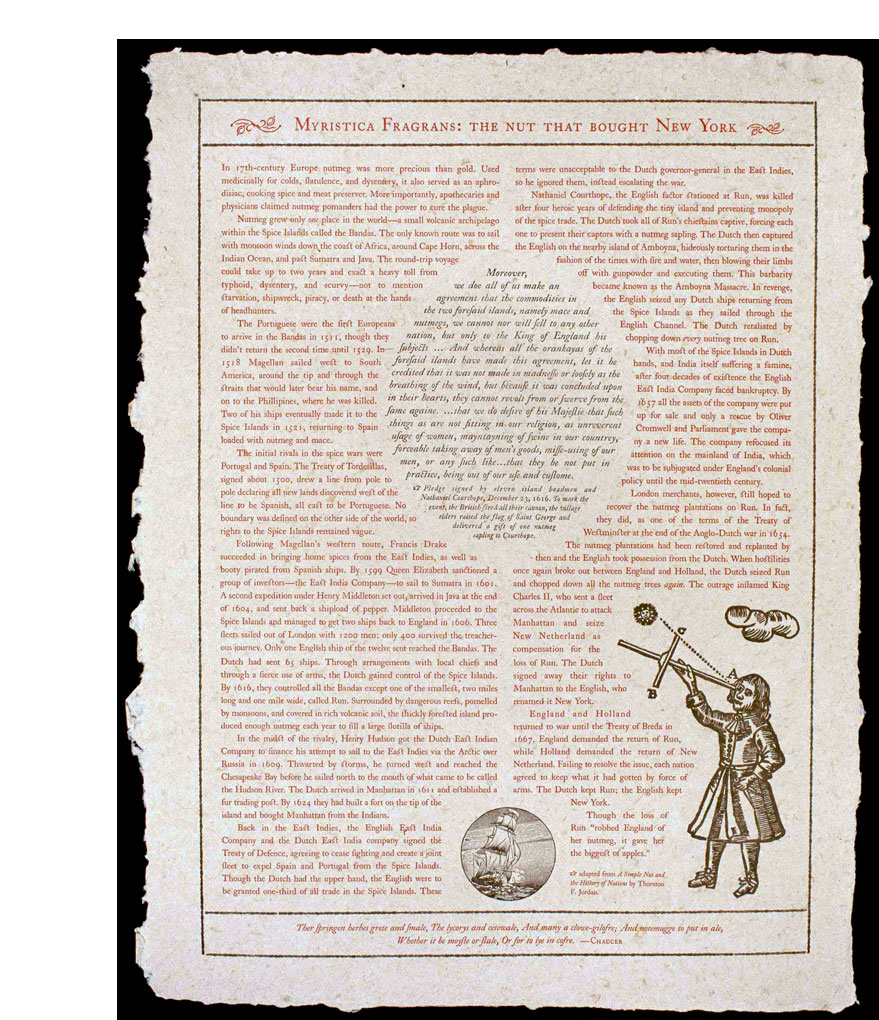 MYRISTICA FRAGRANS: THE NUT THAT BOUGHT NEW YORK
In 17th-century Europe nutmeg was more precious than gold. Used
medicinally for colds, flatulence, and dysentery, it also served as an aphro-
disiac, cooking spice and meat preserver. More importantly, apothecaries and
physicians claimed nutmeg pomanders had the power to cure the plague.
Nutmeg grew only one place in the world—a small volcanic archipelago
within the Spice Islands called the Bandas. The only known route was to sail
with monsoon winds down the coast of Africa, around Cape Horn, across the
Indian Ocean, and past Sumatra and Java. The round-trip voyage
could take up to two years and exact a heavy toll from
typhoid, dysentery, and scurvy—not to mention
starvation, shipwreck, piracy, or death at the hands
of headhunters.
The Portuguese were the first Europeans
to arrive in the Bandas in 1511, though they
didn't return the second time until 1529. In
1518 Magellan sailed west to South
America, around the tip and through the
straits that would later bear his name, and
on to the Phillipines, where he was killed.
Two of his ships eventually made it to the
Spice Islands in 1521, returning to Spain
loaded with nutmeg and mace.
The initial rivals in the spice wars were
Portugal and Spain. The Treaty of Tordesillas,
signed about 1500, drew a line from pole to
pole declaring all new lands discovered west of the
line to be Spanish, all east to be Portuguese. No
boundary was defined on the other side of the world, so
rights to the Spice Islands remained vague.
Following Magellan's western route, Francis Drake
succeeded in bringing home spices from the East Indies, as well as
booty pirated from Spanish ships. By 1599 Queen Elizabeth sanctioned a
group of investors—the East India Company—to sail to Sumatra in 1601.
A second expedition under Henry Middleton set out, arrived in Java at the end
of 1604, and sent back a shipload of pepper. Middleton proceeded to the
Spice Islands and managed to get two ships back to England in 1606. Three
fleets sailed out of London with 1200 men; only 400 survived the treacher-
ous journey. Only one English ship of the twelve sent reached the Bandas. The
Dutch had sent 65 ships. Through arrangements with local chiefs and
through a fierce use of arms, the Dutch gained control of the Spice Islands.
By 1616, they controlled all the Bandas except one of the smallest, two miles
long and one mile wide, called Run. Surrounded by dangerous reefs, pomelled
by monsoons, and covered in rich volcanic soil, the thickly forested island pro-
duced enough nutmeg each year to fill a large flotilla of ships.
In the midst of the rivalry, Henry Hudson got the Dutch East Indian
Company to finance his attempt to sail to the East Indies via the Arctic over
Russia in 1609. Thwarted by storms, he turned west and reached the
Chesapeake Bay before he sailed north to the mouth of what came to be called
the Hudson River. The Dutch arrived in Manhattan in 1611 and established a
fur trading post. By 1624 they had built a fort on the tip of the
island and bought Manhattan from the Indians.
Back in the East Indies, the English East India
Company and the Dutch East India company signed the
Treaty of Defence, agreeing to cease fighting and create a joint
fleet to expel Spain and Portugal from the Spice Islands.
Though the Dutch had the upper hand, the English were to
be granted one-third of all trade in the Spice Islands. These
Moreover,
we doe all of us make an
agreement that the commodities in
the two foresaid ilands, namely mace and
nutmegs, we cannot nor will sell to any other
nation, but only to the King of England his
subjects ... And whereas all the orankayas of the
foresaid ilands have made this agreement, let it be
credited that it was not made in madnesse or loosely as the
breathing of the wind, but because it was concluded upon
in their hearts, they cannot revolt from or swerve from the
same againe. ...that we do desire of his Majestie that such
things as are not fitting in our religion, as unreverent
usage of women, mayntayning of swine in our countrey,
forceable taking away of men's goods, misse-using of our
men, or any such like...that they be not put in
practice, being out of our use and custome.
☞ Pledge signed by eleven island headmen and
Nathaniel Courthope, December 23, 1616. To mark the
event, the British fired all their cannon, the village
elders raised the flag of Saint George and
delivered a gift of one nutmeg
sapling to Courthope.
terms were unacceptable to the Dutch governor-general in the East Indies,
so he ignored them, instead escalating the war.
Nathaniel Courthope, the English factor stationed at Run, was killed
after four heroic years of defending the tiny island and preventing monopoly
of the spice trade. The Dutch took all of Run's chieftains captive, forcing each
one to present their captors with a nutmeg sapling. The Dutch then captured
the English on the nearby island of Amboyna, hideously torturing them in the
fashion of the times with fire and water, then blowing their limbs
off with gunpowder and executing them. This barbarity
became known as the Amboyna Massacre. In revenge,
the English seized any Dutch ships returning from
the Spice Islands as they sailed through the
English Channel. The Dutch retaliated by
chopping down every nutmeg tree on Run.
With most of the Spice Islands in Dutch
hands, and India itself suffering a famine,
after four decades of existence the English
East India Company faced bankruptcy. By
1657 all the assets of the company were put
up for sale and only a rescue by Oliver
Cromwell and Parliament gave the compa-
ny a new life. The company refocused its
attention on the mainland of India, which
was to be subjugated under England's colonial
policy until the mid-twentieth century.
London merchants, however, still hoped to
recover the nutmeg plantations on Run. In fact,
they did, as one of the terms of the Treaty of
Westminster at the end of the Anglo-Dutch war in 1654.
The nutmeg plantations had been restored and replanted by
then and the English took possession from the Dutch. When hostilities
once again broke out between England and Holland, the Dutch seized Run
and chopped down all the nutmeg trees again. The outrage inflamed King
Charles II, who sent a fleet
across the Atlantic to attack
Manhattan and seize
New Netherland as
compensation for the
loss of Run. The Dutch
signed away their rights to
Manhattan to the English, who
renamed it New York.
England and Holland
returned to war until the Treaty of Breda in
1667. England demanded the return of Run,
while Holland demanded the return of New
Netherland. Failing to resolve the issue, each nation
agreed to keep what it had gotten by force of
arms. The Dutch kept Run; the English kept
New York.
Though the loss of
Run "robbed England of
her nutmeg, it gave her
the biggest of apples."
☞ adapted from A Simple Nut and
the History of Nations by Thornton
F. Jordan.
C
A
B
Ther springen herbes grete and smale, The lycorys and cetewale, And many a clowe-gilofre; And notemugge to put in ale,
Whether it be moyste or stale, Or for to lye in cofre. —CHAUCER